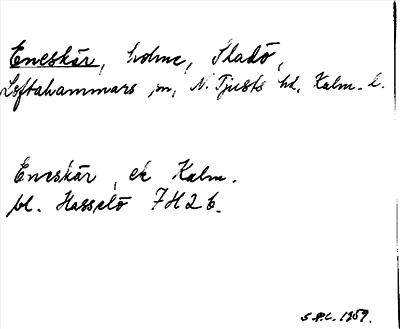 Eneskär, holme, Sladö,
Loftahammars sn, N. Tjusts hd, Kalm. l.
Eneskär, ek Kalm.
bl. Hasselö 7H2b.
S.P.L. 1959.